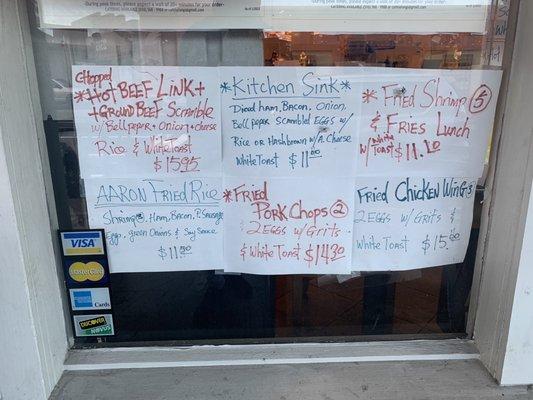 During peak times, please expect a wait of 20+ minutes for your order.
Chopped
*Hot Beef Link +
+ Ground Beef Scramble
w/ Bellpepper + Onion + Cheese
Rice & White Toast
$15.95
*Kitchen Sink*
Diced ham, Bacon, Onion,
Bell peper Scrambled Eggs w/
Rice or Hashbrown w/A. Cheese
White Toast $11.00
*Fried Shrimp ⑤
& Fries Lunch
w/ White Toast $11.10
Aaron Fried Rice
Shrimp, Ham, Bacon, P. Sausage
Eggs, green Onions & Soy Sauce
*Fried
Pork Chops ②
2 Eggs w/ Grits
& White Toast $14.30
Fried Chicken Wing
2 Eggs w/ Grits &
White Toast
VISA
MasterCard
Cards
DISCOVER
NOVUS